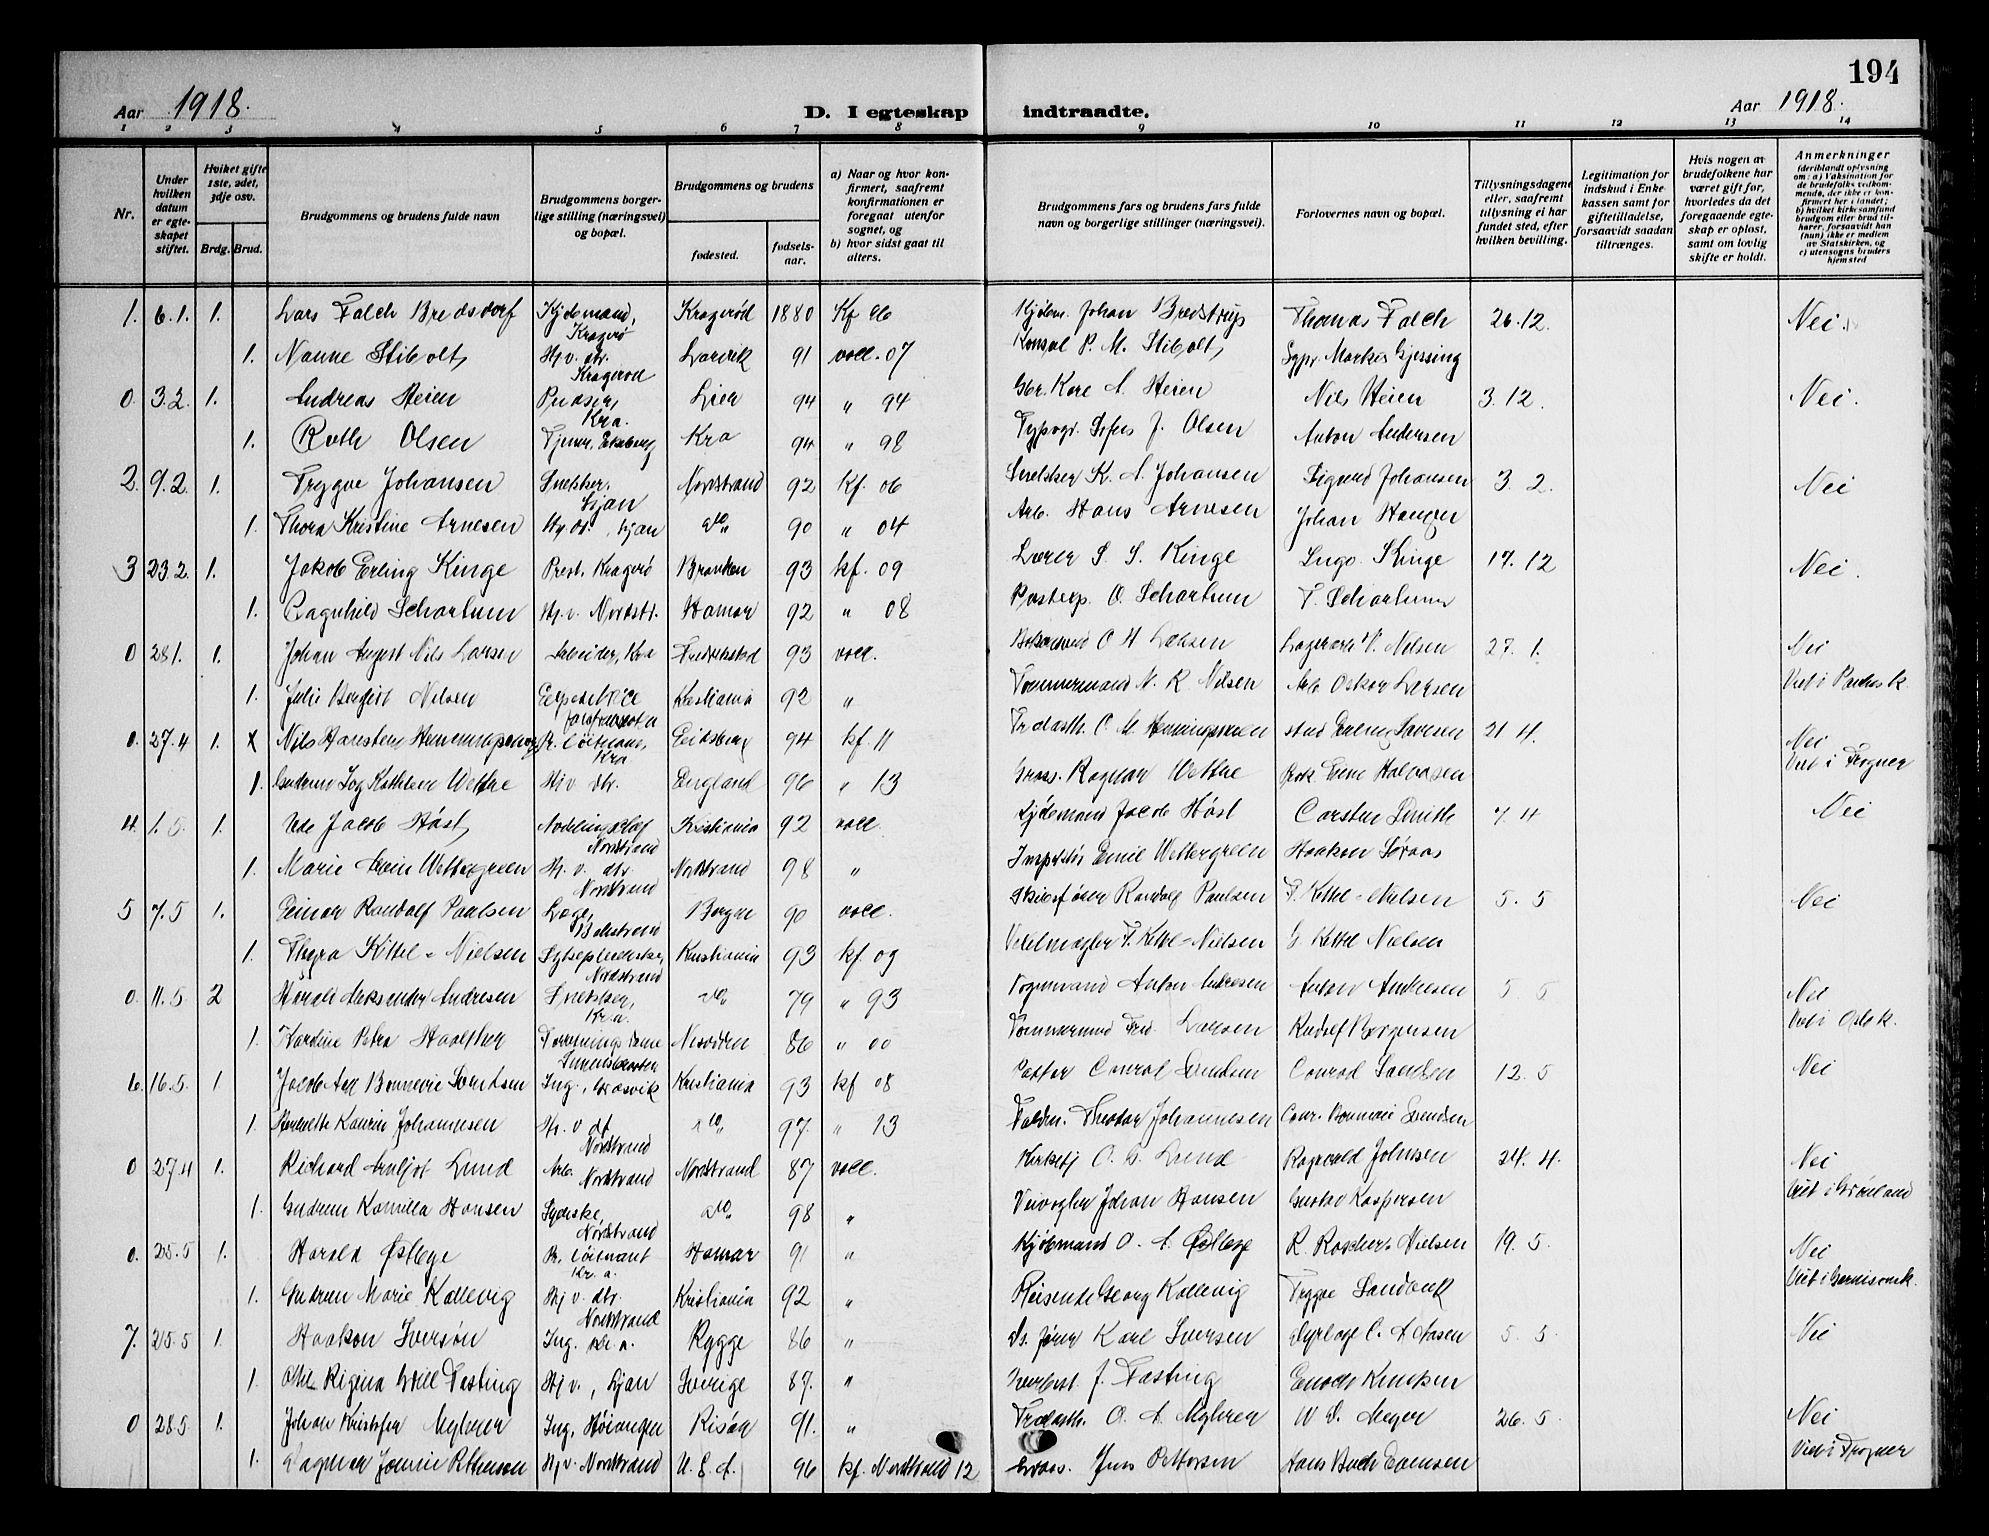 194
Aar 1918.
D. I egteskap indtraadte.
Aar 1918.
1 2 3 4 5 6 7 8 9 10 11 12 13 14
Nr.
Under hvilken datum er egteskapet stiftet.
Hvilket gifte 1ste, 2det, 3dje osv.
Brdg. Brud.
Brudgommens og brudens fulde navn
Brudgommens borgerlige stilling (næringsvei) og bopæl.
Brudgommens og brudens
fødested.
fødselsaar.
a) Naar og hvor konfirmert, saafremt konfirmationen er foregaat utenfor sognet, og
b) hvor sidst gaat til alters.
Brudgommens fars og brudens fars fulde navn og borgerlige stillinger (næringsvei).
Forlovernes navn og bopæl.
Tillysningsdagene eller, saafremt tillysning ei har fundet sted, efter hvilken bevilling.
Legitimation for indskud i Enkekassen samt for giftetilladelse, forsaavidt saadan tiltrænges.
Hvis nogen av brudefolkene har været gift før, hvorledes da det foregaaende egteskap er opløst, samt om lovlig skifte er holdt.
Anmerkninger
(deriblandt oplysning om: a) Vaksination for de brudefolks vedkommende, der ikke er konfirmert her i landet; b) hvilket kirkesamfund brudgom eller brud tilhører, forsaavidt han (hun) ikke er medlem av Statskirken, og c) utensogns bruders hjemsted
1. 6.1. 1. Lars Falch Bredsdorf Kjøbmand, Kragerø Kragerød 1880 Kf 96 Kjøbm. Johan Bredstrup Thomas Falch 26.12. Nei.
1. Nanne Stibolt, Hj. v. dtr. Kragerød Larvik 91 vocl. 07 Konsul P. M. Stibolt, Sgpr. Markus Gjessing
0. 3.2. 1. Andreas Heien Kra. Lier 94 " 94 Gbr. Kare A. Heien Nils Heien 3.12. Nei.
1. Ruth Olsen Kra 94 " 98 Typogr. Sofus J. Olsen Anton Andersen
2. 9.2. 1. Trygve Johansen Snekker. Ljan Nordstrand 92 kf. 06 Snekker K. A. Johansen Sigurd Johansen 3. 2. Nei
1. Thora Kristine Arnesen Hj. dt., Ljan do 90 " 04 Arb. Hans Arnesen Johan Hanger
3 23.2. 1. Jakob Erling Kinge Prest. Kragerø 93 kf. 09 Lærer S. S. Kinge Ingo. Kinge 17. 12 Nei.
1. Ragnhild Schartum Hj. v. Nordstr. Hamar 92 " 08 Postexp. O. Schartum T. Schartum
0 28.1. 1. Johan August Nils Larsen Arbeider, Kra Fredrikstad 93 vocl. O H Larsen V. Nilsen 27. 1. Nei
1. Julie Bergliot Nilsen Kristiania 92 " Tømmermand N. R. Nilsen Arb. Oskar Larsen Viet i Paulus k.
0. 27.4 1. Pr. Løitnant, Kra. Eidsberg 94 kf. 11 21 4. Nei
1. Gudrun Kathleen Wettre Hj v. dtr. England 96 " 13 Gross. Ragnar Wettre Halvorsen Viet i Frogner
4. 1.5. 1. Jacob Høst, Nordstrand Kristiania 92 vocl. Kjøbmand Jacob Høst Carsten Smith 7. 4 Nei
1. Marie Wettergreen Hj. v. dtr. Nordstrand Nordstrand 98 " Emil Wettergreen Haakon Søraas
5 7.5 1. Einar Randolf Paulsen Læge, Bækkestrand 90 vocl. Skibsfører Randolf Paulsen F. Kittel-Nielsen 5. 5 Nei
1. Thyra Kittel-Nielsen Sykepleierske, Nordstrand Kristiania 93 kf. 09 Vekselmægler F. Kittel-Nielsen G. Kittel Nielsen
0. 11.5 2 Andresen Snekker, Kr.a. do 79 " 93 Vognmand Anton Andresen Anton Andresen 5. 5 Nei
1. Karoline Petra Nesodden 86 " 00 Tømmermand Fred. Larsen Rudolf Borgersen Viet i Oslo k.
6. 16.5. 1 Jacob Aall Bonnevie Svendsen Ing., Kristiania 93 kf 08 Pastor Conrad Svendsen Conrad Svendsen 12. 5 Nei
1. Johannesen Hj. v dt. Nordstrand do 97. " 13 Theodor Johannesen Conr. Bonnevie Svendsen
0 27.4 1. Richard Arnljot Lund Arb. Nordstrand Nordstrand 87 vocl. O. G. Lund Ragnvald Johnsen 24. 4. Nei
1. Gudrun Kamilla Hansen Syerske, Nordstrand do 98 " Veivogter Johan Hansen Gustav Kaspersen Viet i Grønland
0. 25.5 1. Harald Østbye Pr. Løitnant Kr. a. Hamar 91 " Kjøbmand O. A. Østbye R. Roscher Nielsen 19. 5. Nei
1. Gudrun Marie Kallevig Hj v. dtr. Nordstrand Kristiania 92 " Reisende Georg Kallevig Trygve Viet i Garnisonsk.
7. 25.5 1. Haakon Iversøn Ing. Kr. a. Rygge 86 " Karl Iversen C. A. Aasen 5. 5. Nei
1. Fasting Hj v., Ljan Sverige 87. " J. Fasting
0 28.5 1. Johan Kristofer Myhrer Ing, Høianger Risør 91. " O. A. Myhrer W. S. Meyer 26. 5. Nei
1. Dagmar Pettersen Hj v. Nordstrand U. S. A. 96 kf. Nordstrand 12 Gross. Jens Pettersen Hans Bach Evensen Viet i Frogner